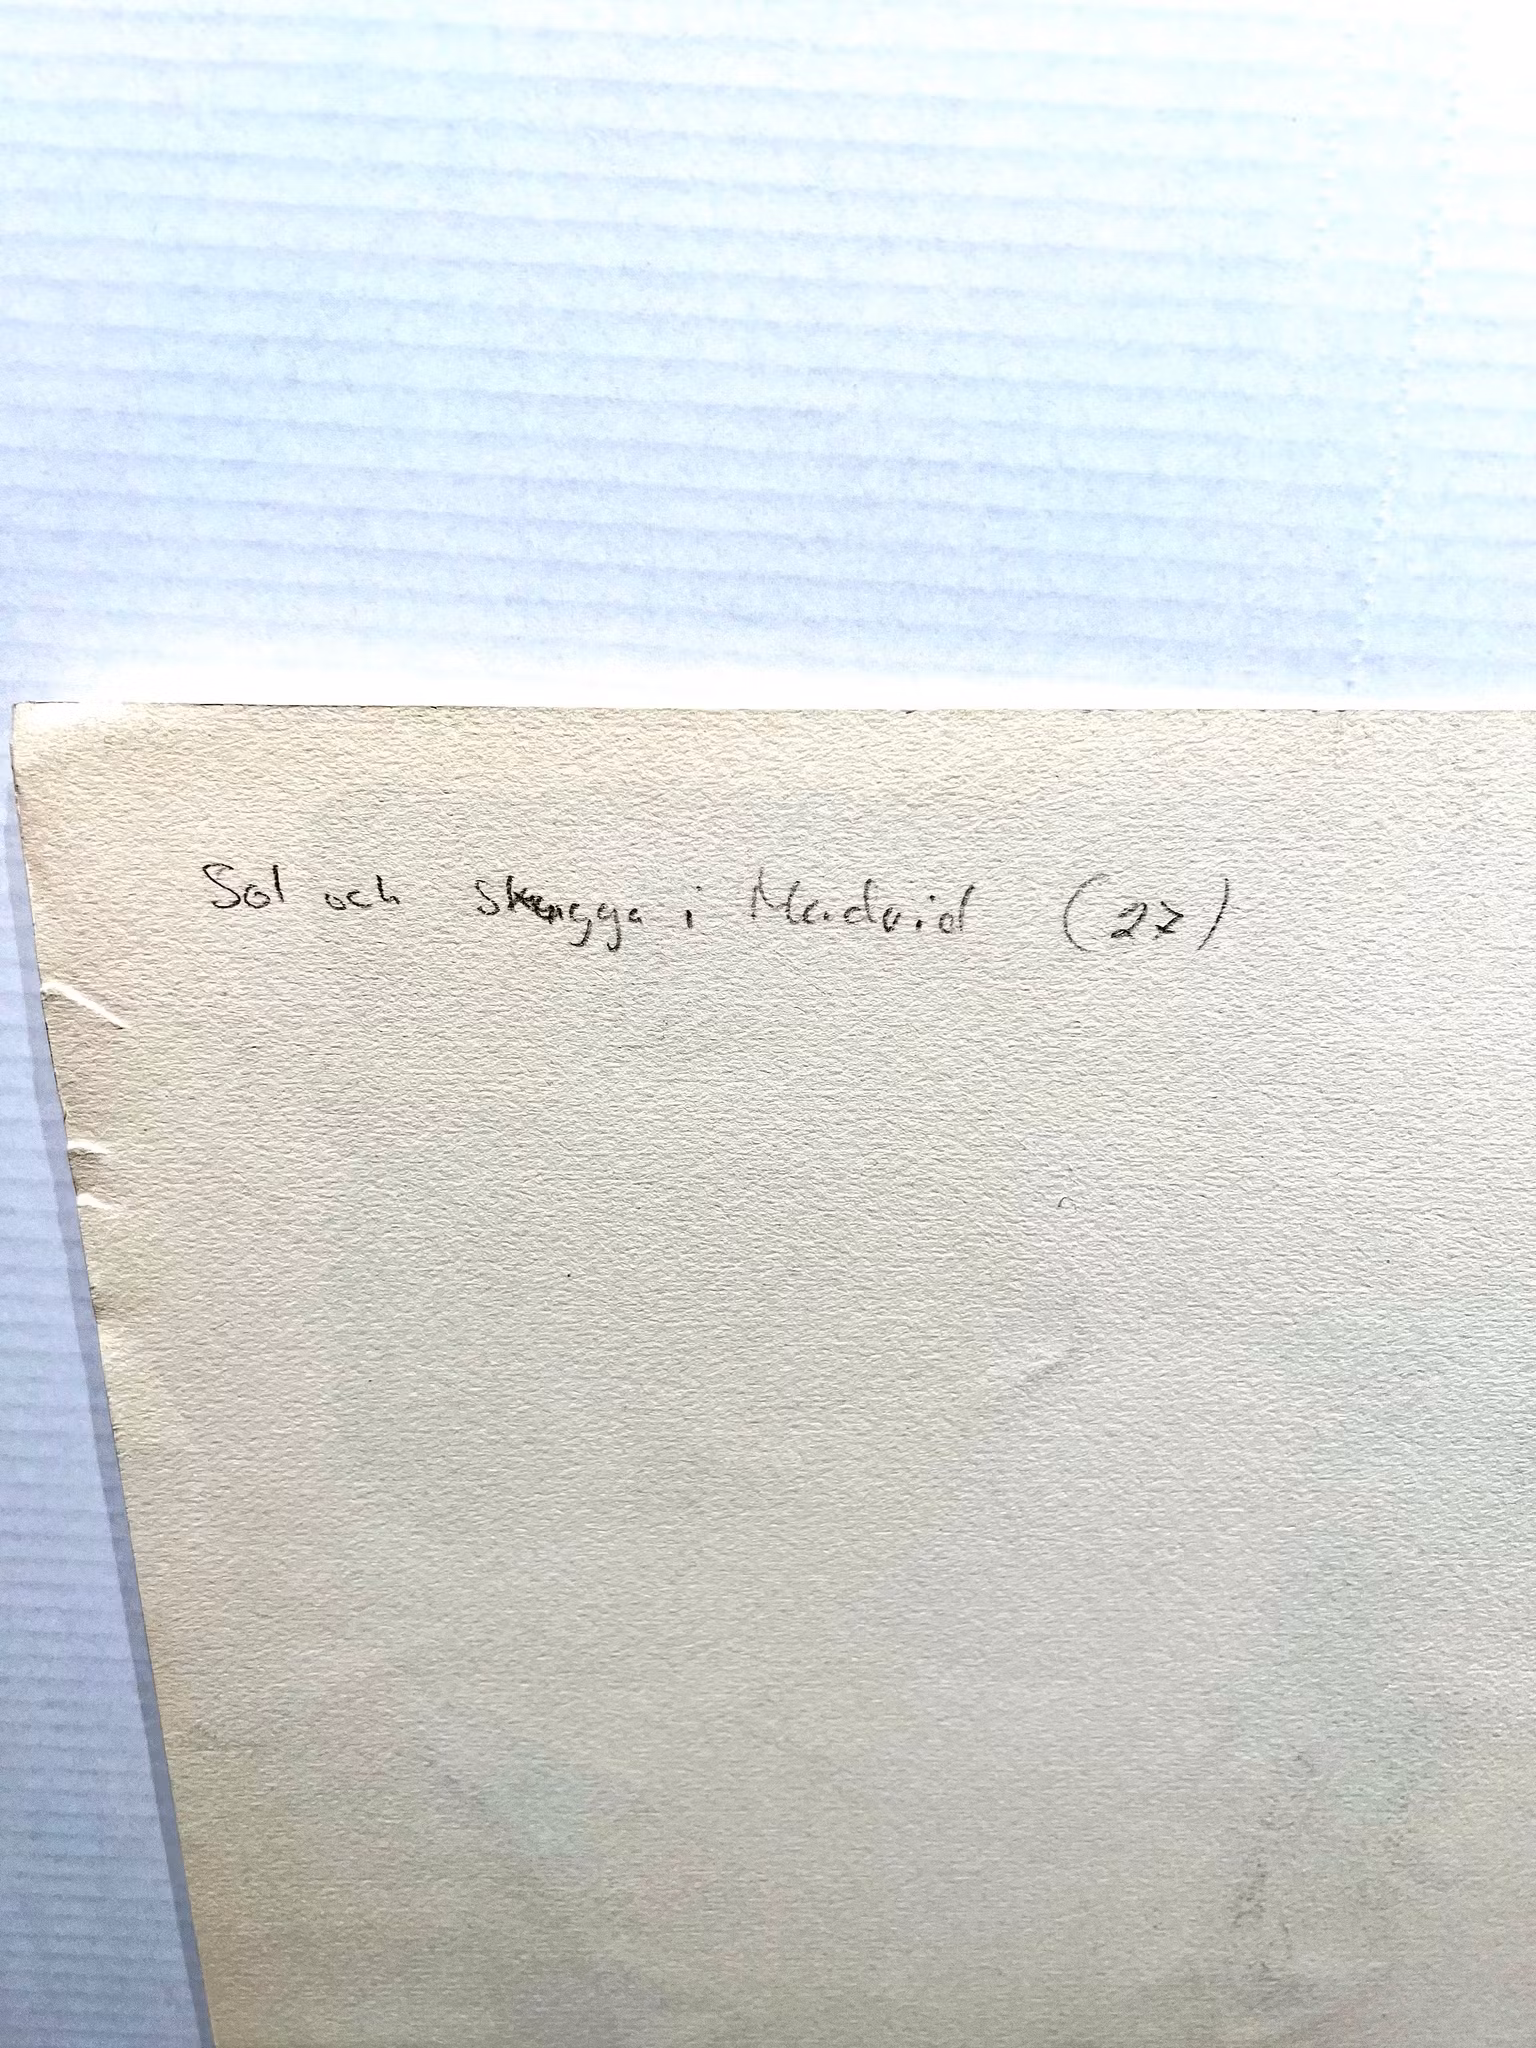 Sol och skugga i Madrid (27)